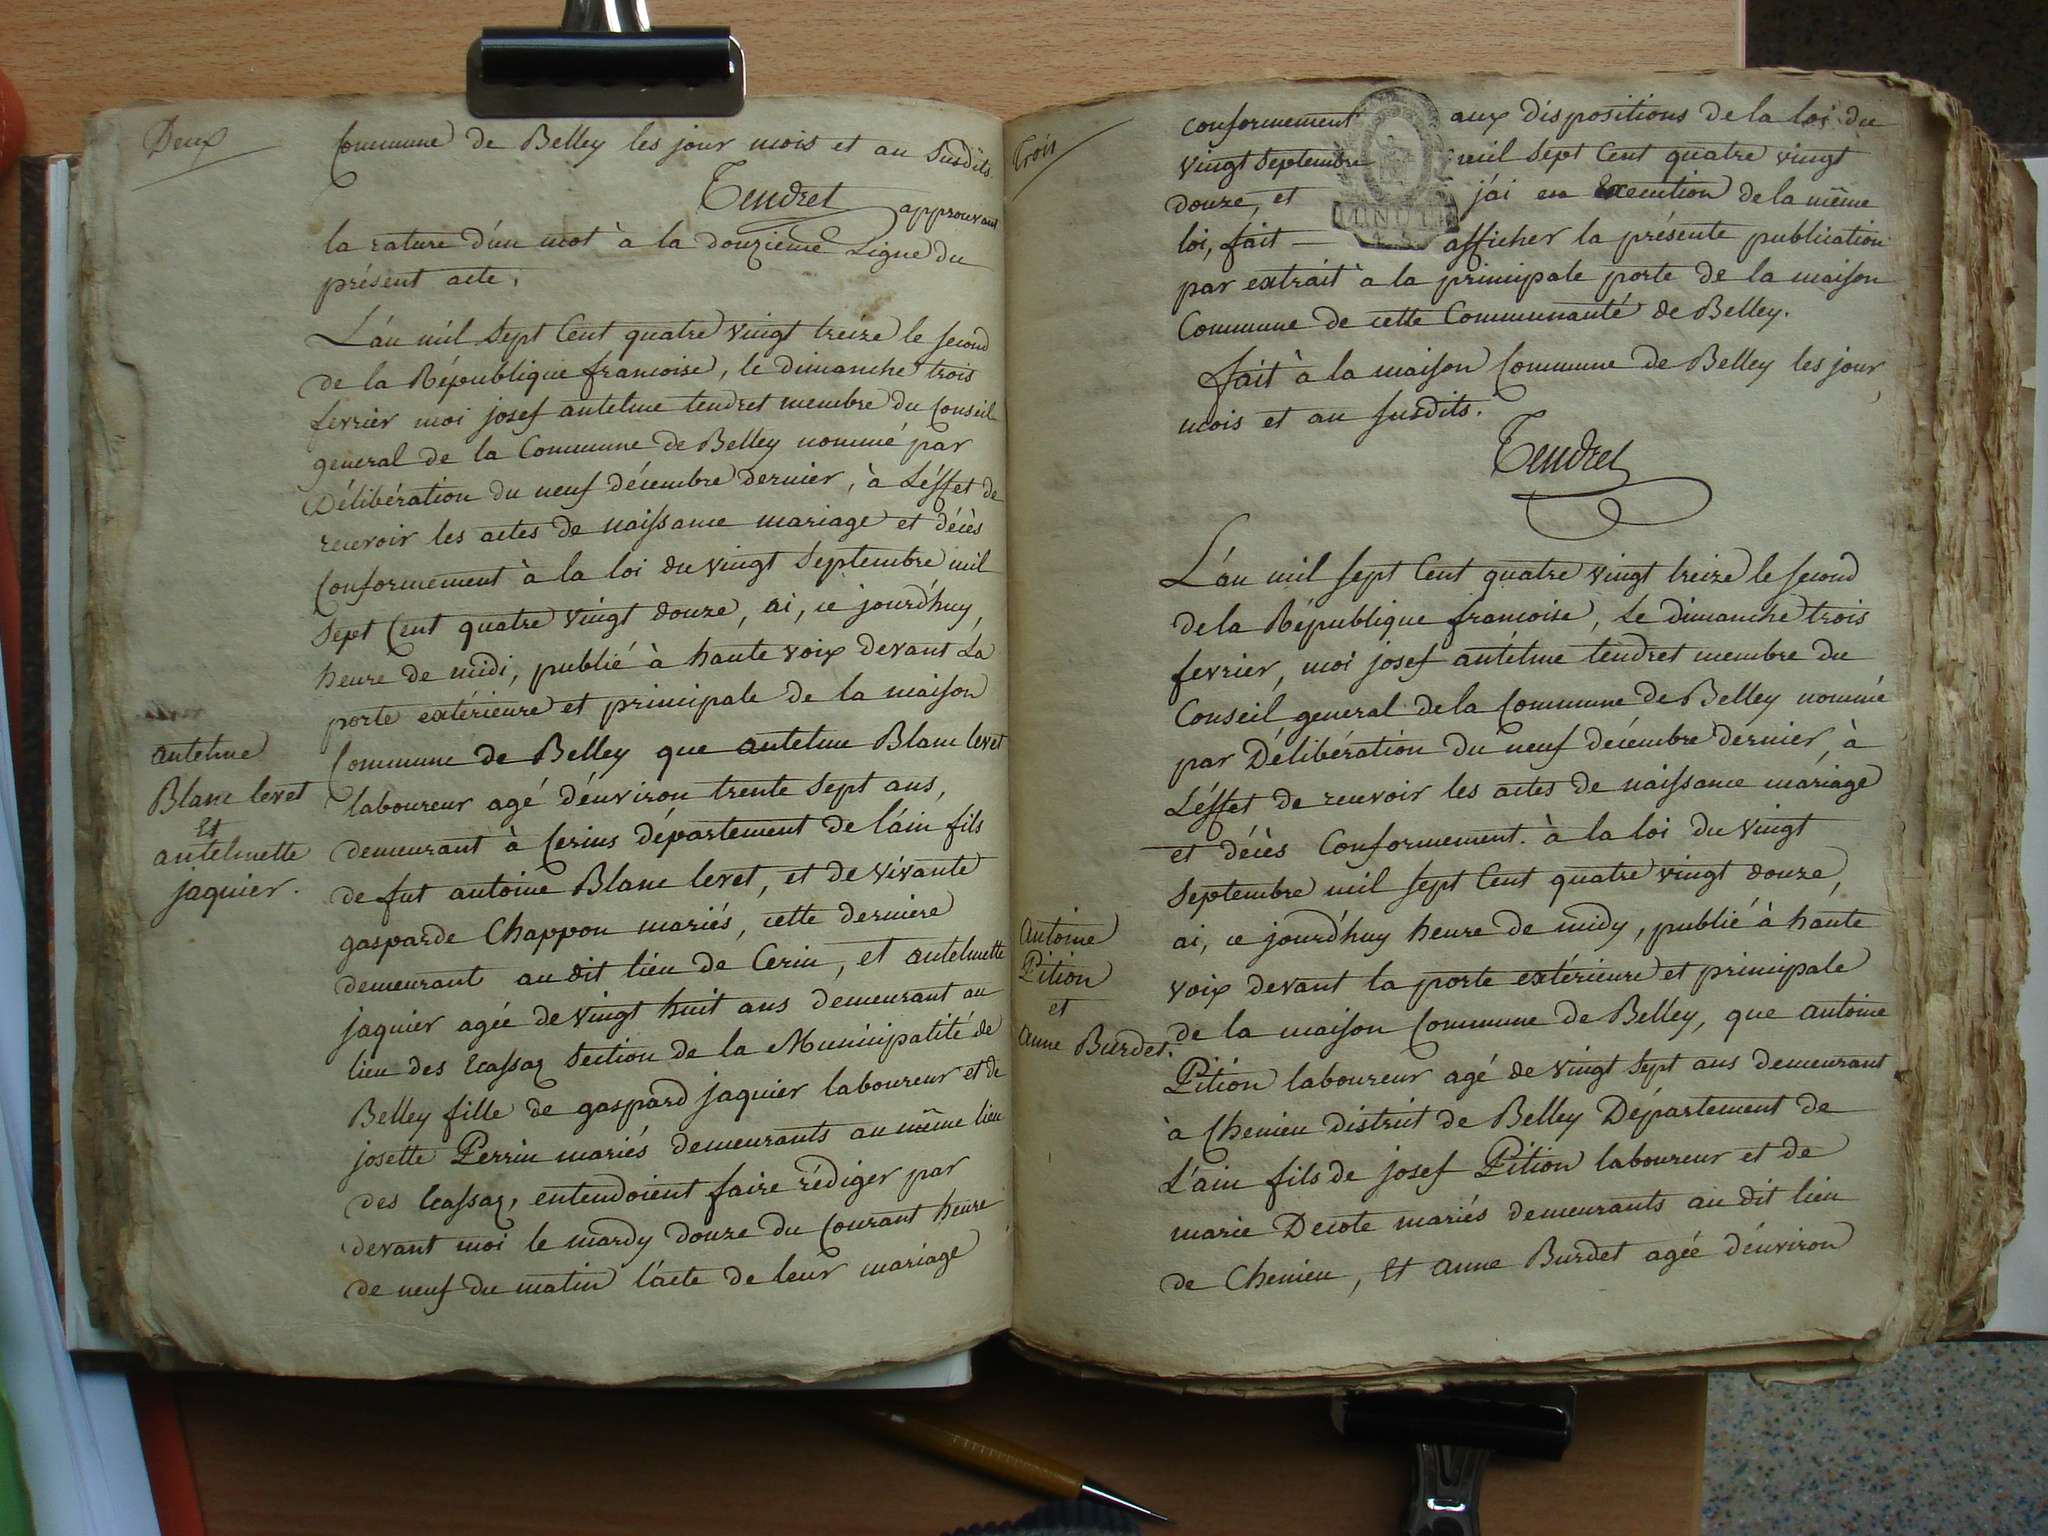 Deux
Commune de Belley les jour mois et an susdits.
Tendret approuvant
la rature d'un mot à la douzieme Ligne du
présent acte.
L'an mil sept Cent quatre vingt treize le second
de la République francoise, le dimanche trois
fevrier moi josef antelme tendret membre du Conseil
general de la Commune de Belley nommé par
Délibération du neuf décembre dernier, à L'éffet de
recevoir les actes de naissance mariage et décès
Conformement à la loi du vingt Septembre mil
Sept Cent quatre vingt douze, ai, ce jourd'huy,
heure de midi, publié à haute voix devant La
porte extérieure et principale de la maison
Commune de Belley que antelme Blanc levet
laboureur agé d'énviron trente sept ans,
demeurant à Cerins département de l'ain fils
de fut antoine Blanc levet, et de vivante
gasparde Chappon mariés, cette derniere
demeurant au dit lieu de Cerin, et antelmette
jaquier agée de vingt huit ans demeurant au
lieu des Ecassaz Section de la Municipalité de
Belley fille de gaspard jaquier laboureur et de
josette Perrin mariés demeurants au même lieu
des Ecassaz, entendoient faire rédiger par
devant moi le mardy douze du Courant heure
de neuf du matin l'acte de leur mariage
antelme
Blanc levet
Et
antelmette
jaquier.
trois
conformement aux dispositions de la loi du
vingt septembre mil sept Cent quatre vingt
douze, et j'ai en execution de la même
loi, fait afficher la présente publication
par extrait à la principale porte de la maison
Commune de cette Communauté de Belley.
fait à la maison Commune de Belley les jour
mois et an susdits.
Tendret
L'an mil sept Cent quatre vingt treize le second
de la République francoise, Le dimanche trois
fevrier, moi josef antélme tendret membre du
Conseil general de la Commune de Belley nommé
par Délibération du neuf décembre dernier, à
L'éffet de recevoir les actes de naissance máriage
et décès Conformement. à la loi du vingt
Septembre mil sept Cent quatre vingt douze,
ai, ce jourd'huy heure de midy, publié à háute
voix devant la porte extérieure et principale
de la maison Commune de Belley, que antoine
Pition laboureur agé de vingt sept ans demeurant
à Chemieu district de Belley Département de
L'ain fils de josef Pition laboureur et de
marie Decote mariés demeurants au dit lieu
de Chemieu, et anne Burdet agée d'énviron
Antoine
Pition
et
anne Burdet.